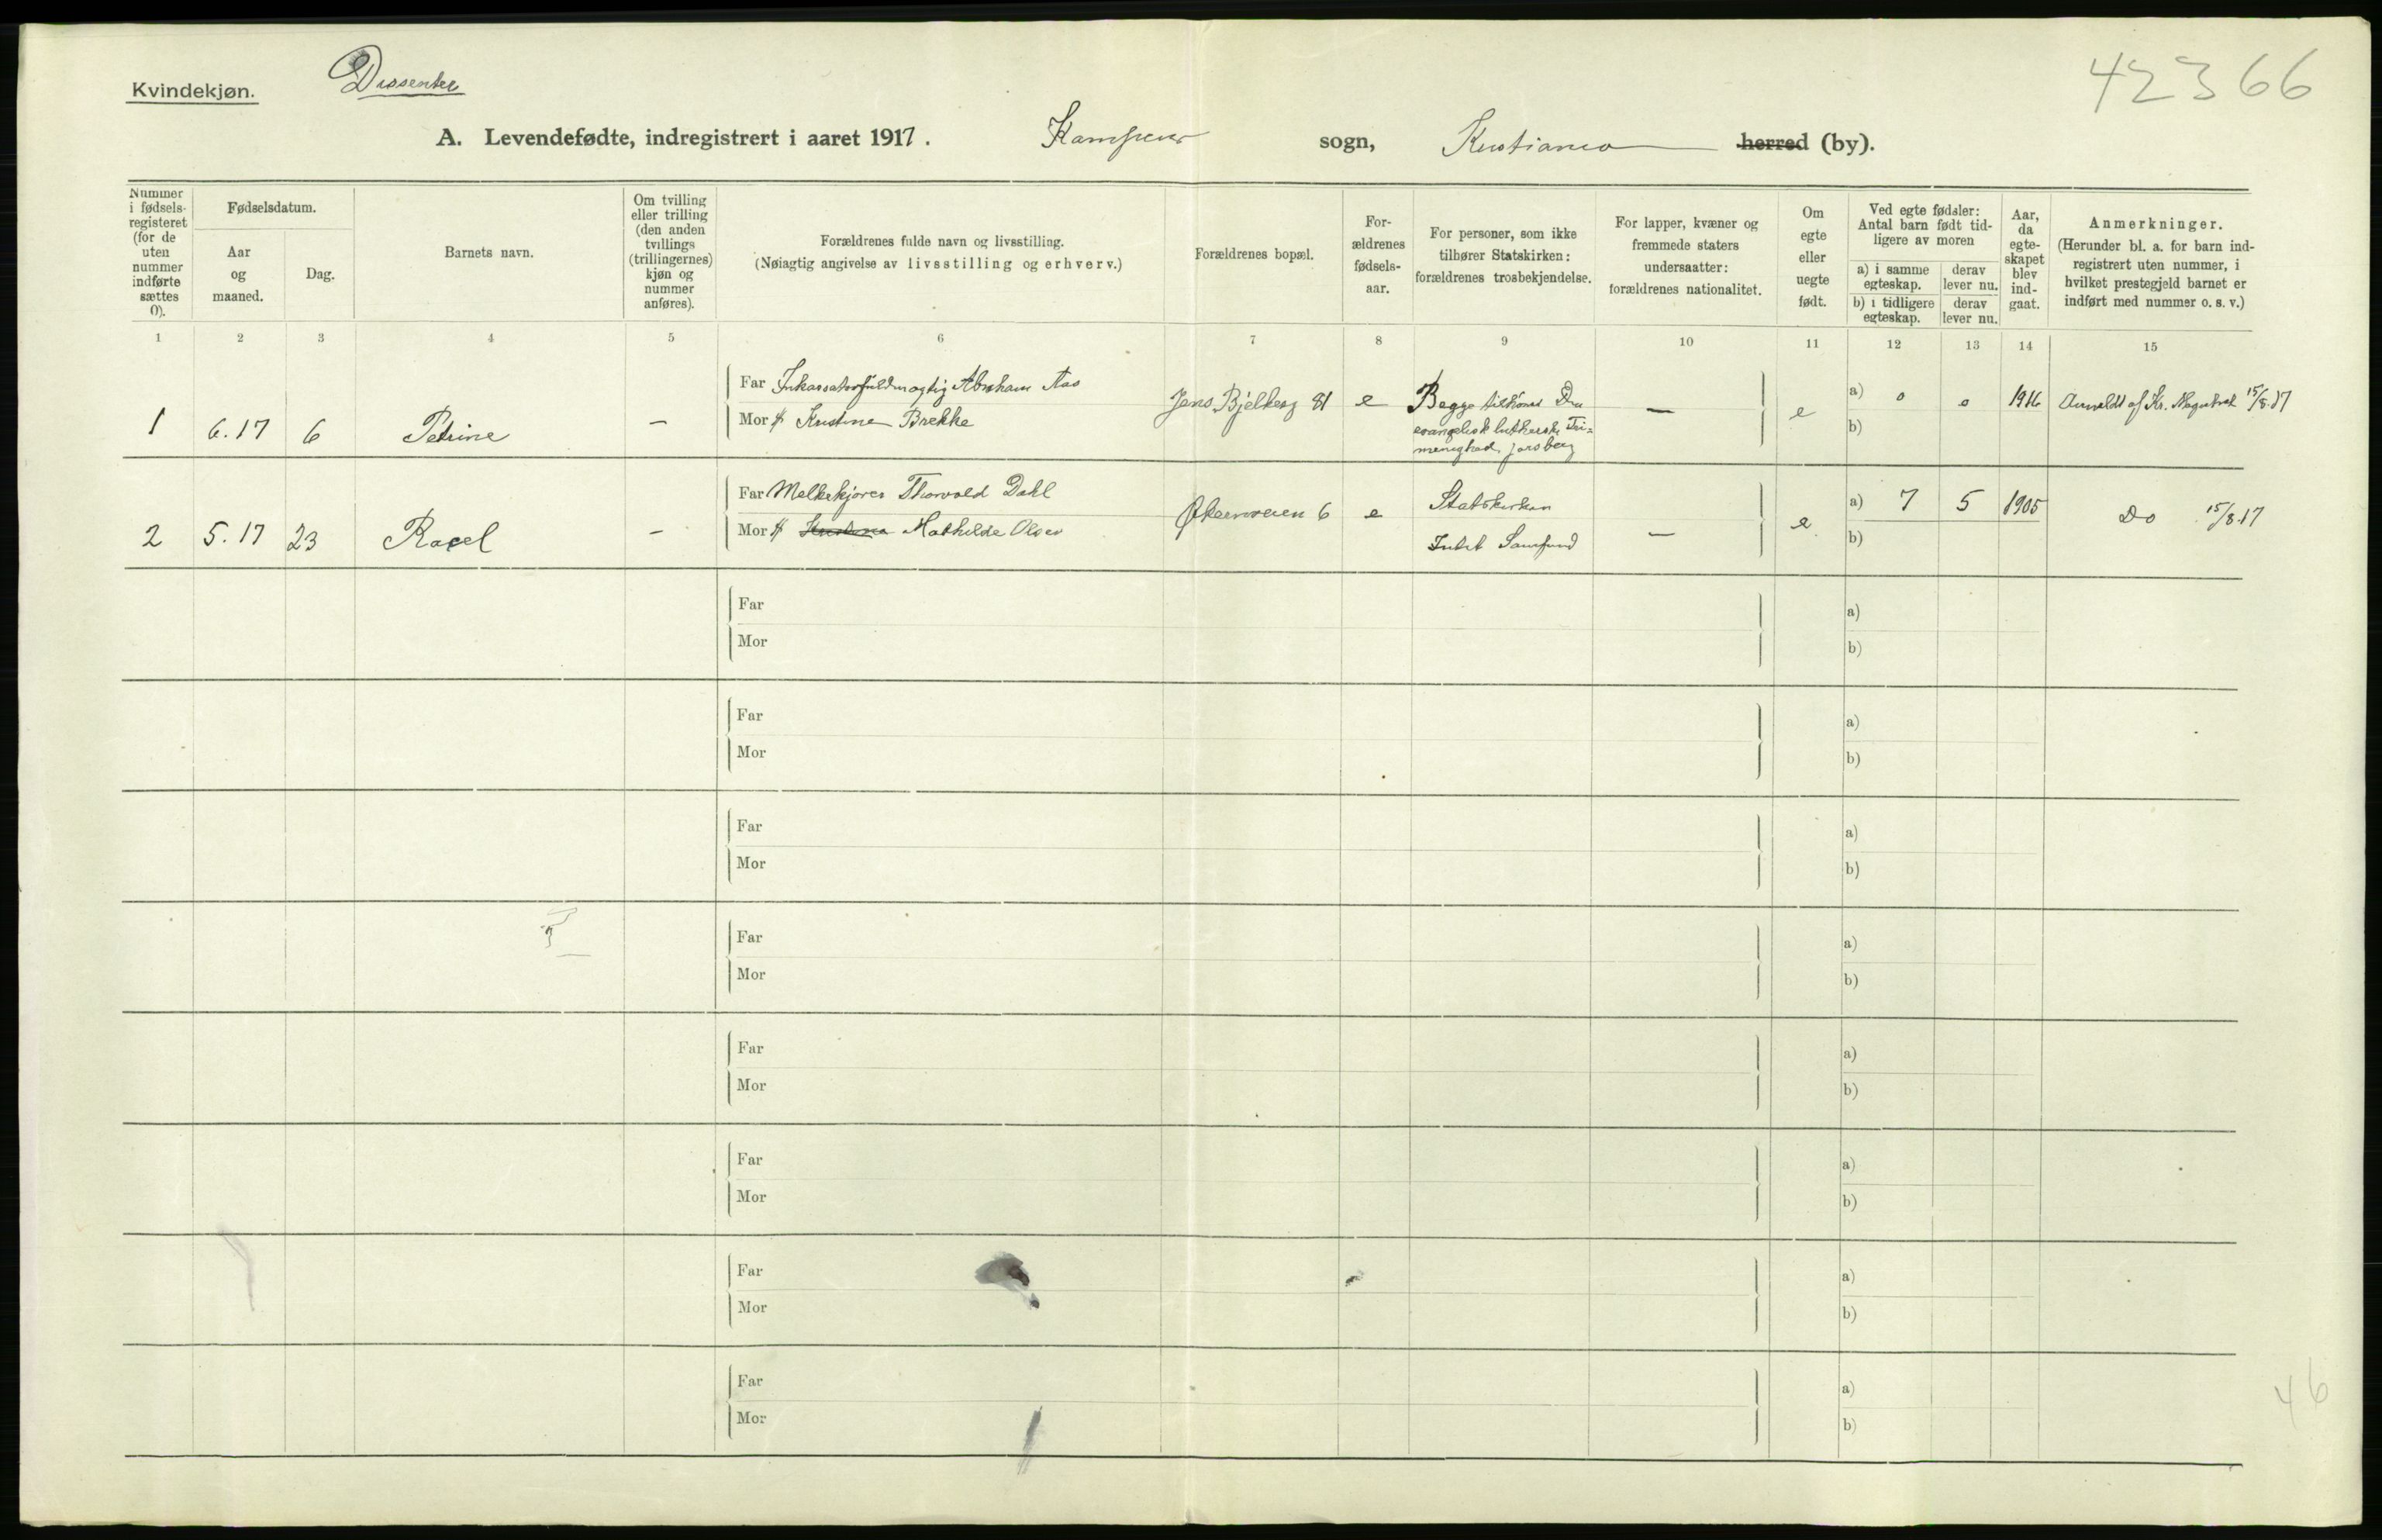 Kvindekjøn.
Dissenter
42366
A. Levendefødte, indregistrert i aaret 1917.
Kampens sogn, Kristiania herred (by).
Nummer i fødselsregisteret (for de uten nummer indførte sættes 0).
Fødselsdatum.
Aar og maaned.
Dag.
Barnets navn.
Om tvilling eller trilling (den anden tvillings (trillingernes) kjøn og nummer anføres).
Forældrenes fulde navn og livsstilling.
(Nøiagtig angivelse av livsstilling og erhverv.)
Forældrenes bopæl.
Forældrenes fødselsaar.
For personer, som ikke tilhører Statskirken: forældrenes trosbekjendelse.
For lapper, kvæner og fremmede staters undersaatter: forældrenes nationalitet.
Om egte eller uegte født.
Ved egte fødsler: Antal barn født tidligere av moren
a) i samme egteskap.
derav lever nu.
b) i tidligere egteskap.
derav lever nu.
Aar, da egteskapet blev indgaat.
Anmerkninger.
(Herunder bl. a. for barn indregistrert uten nummer, i hvilket prestegjeld barnet er indført med nummer o. s. v.)
1 2 3 4 5 6 7 8 9 10 11 12 13 14 15
1 6.17 6 Petrine —
Far Inkassatorfuldmægtig Abraham Aas
Mor H Kristine Brekke
Jens Bjelkesg 81 e
Begge tilhører Den
evangelisk lutherske Fri=
menighed,
— e
a) 0 0 1916
b)
Anmeldt af Kr. Magistrat 15/8.17
2 5.17 23 Racel —
Far Melkekjører Thorvald Dahl
Mor H Kristine Mathilde Olsen
Økernveien 6 e
Statskirken
Intet Samfund
— e
a) 7 5 1905
b)
Do 15/8.17
Far
Mor
a)
b)
Far
Mor
a)
b)
Far
Mor
a)
b)
Far
Mor
a)
b)
Far
Mor
a)
b)
Far
Mor
a)
b)
Far
Mor
a)
b)
Far
Mor
a)
b)
46